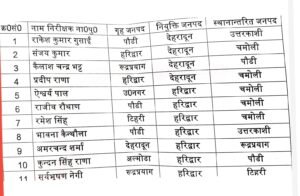 क्र०सं० नाम निरीक्षक ना०पु० गृह जनपद नियुक्ति जनपद स्थानान्तरित जनपद
1 राकेश कुमार गुसाई पौडी देहरादून उत्तरकाशी
2 संजय कुमार हरिद्वार देहरादून चमोली
3 कैलाश चन्द्र भट्ट रूद्रप्रयाग हरिद्वार पौडी
4 प्रदीप राणा हरिद्वार देहरादून चमोली
5 ऐश्वर्य पाल उ0नगर हरिद्वार चमोली
6 राजीव रौथाण पौडी हरिद्वार चमोली
7 रमेश सिंह टिहरी हरिद्वार चमोली
8 भावना कैन्थौला पौडी हरिद्वार उत्तरकाशी
9 अमरचन्द शर्मा देहरादून हरिद्वार रूद्रप्रयाग
10 कुन्दन सिंह राणा अल्मोडा हरिद्वार पौडी
11 सर्वभूषण नेगी रूद्रप्रयाग हरिद्वार टिहरी